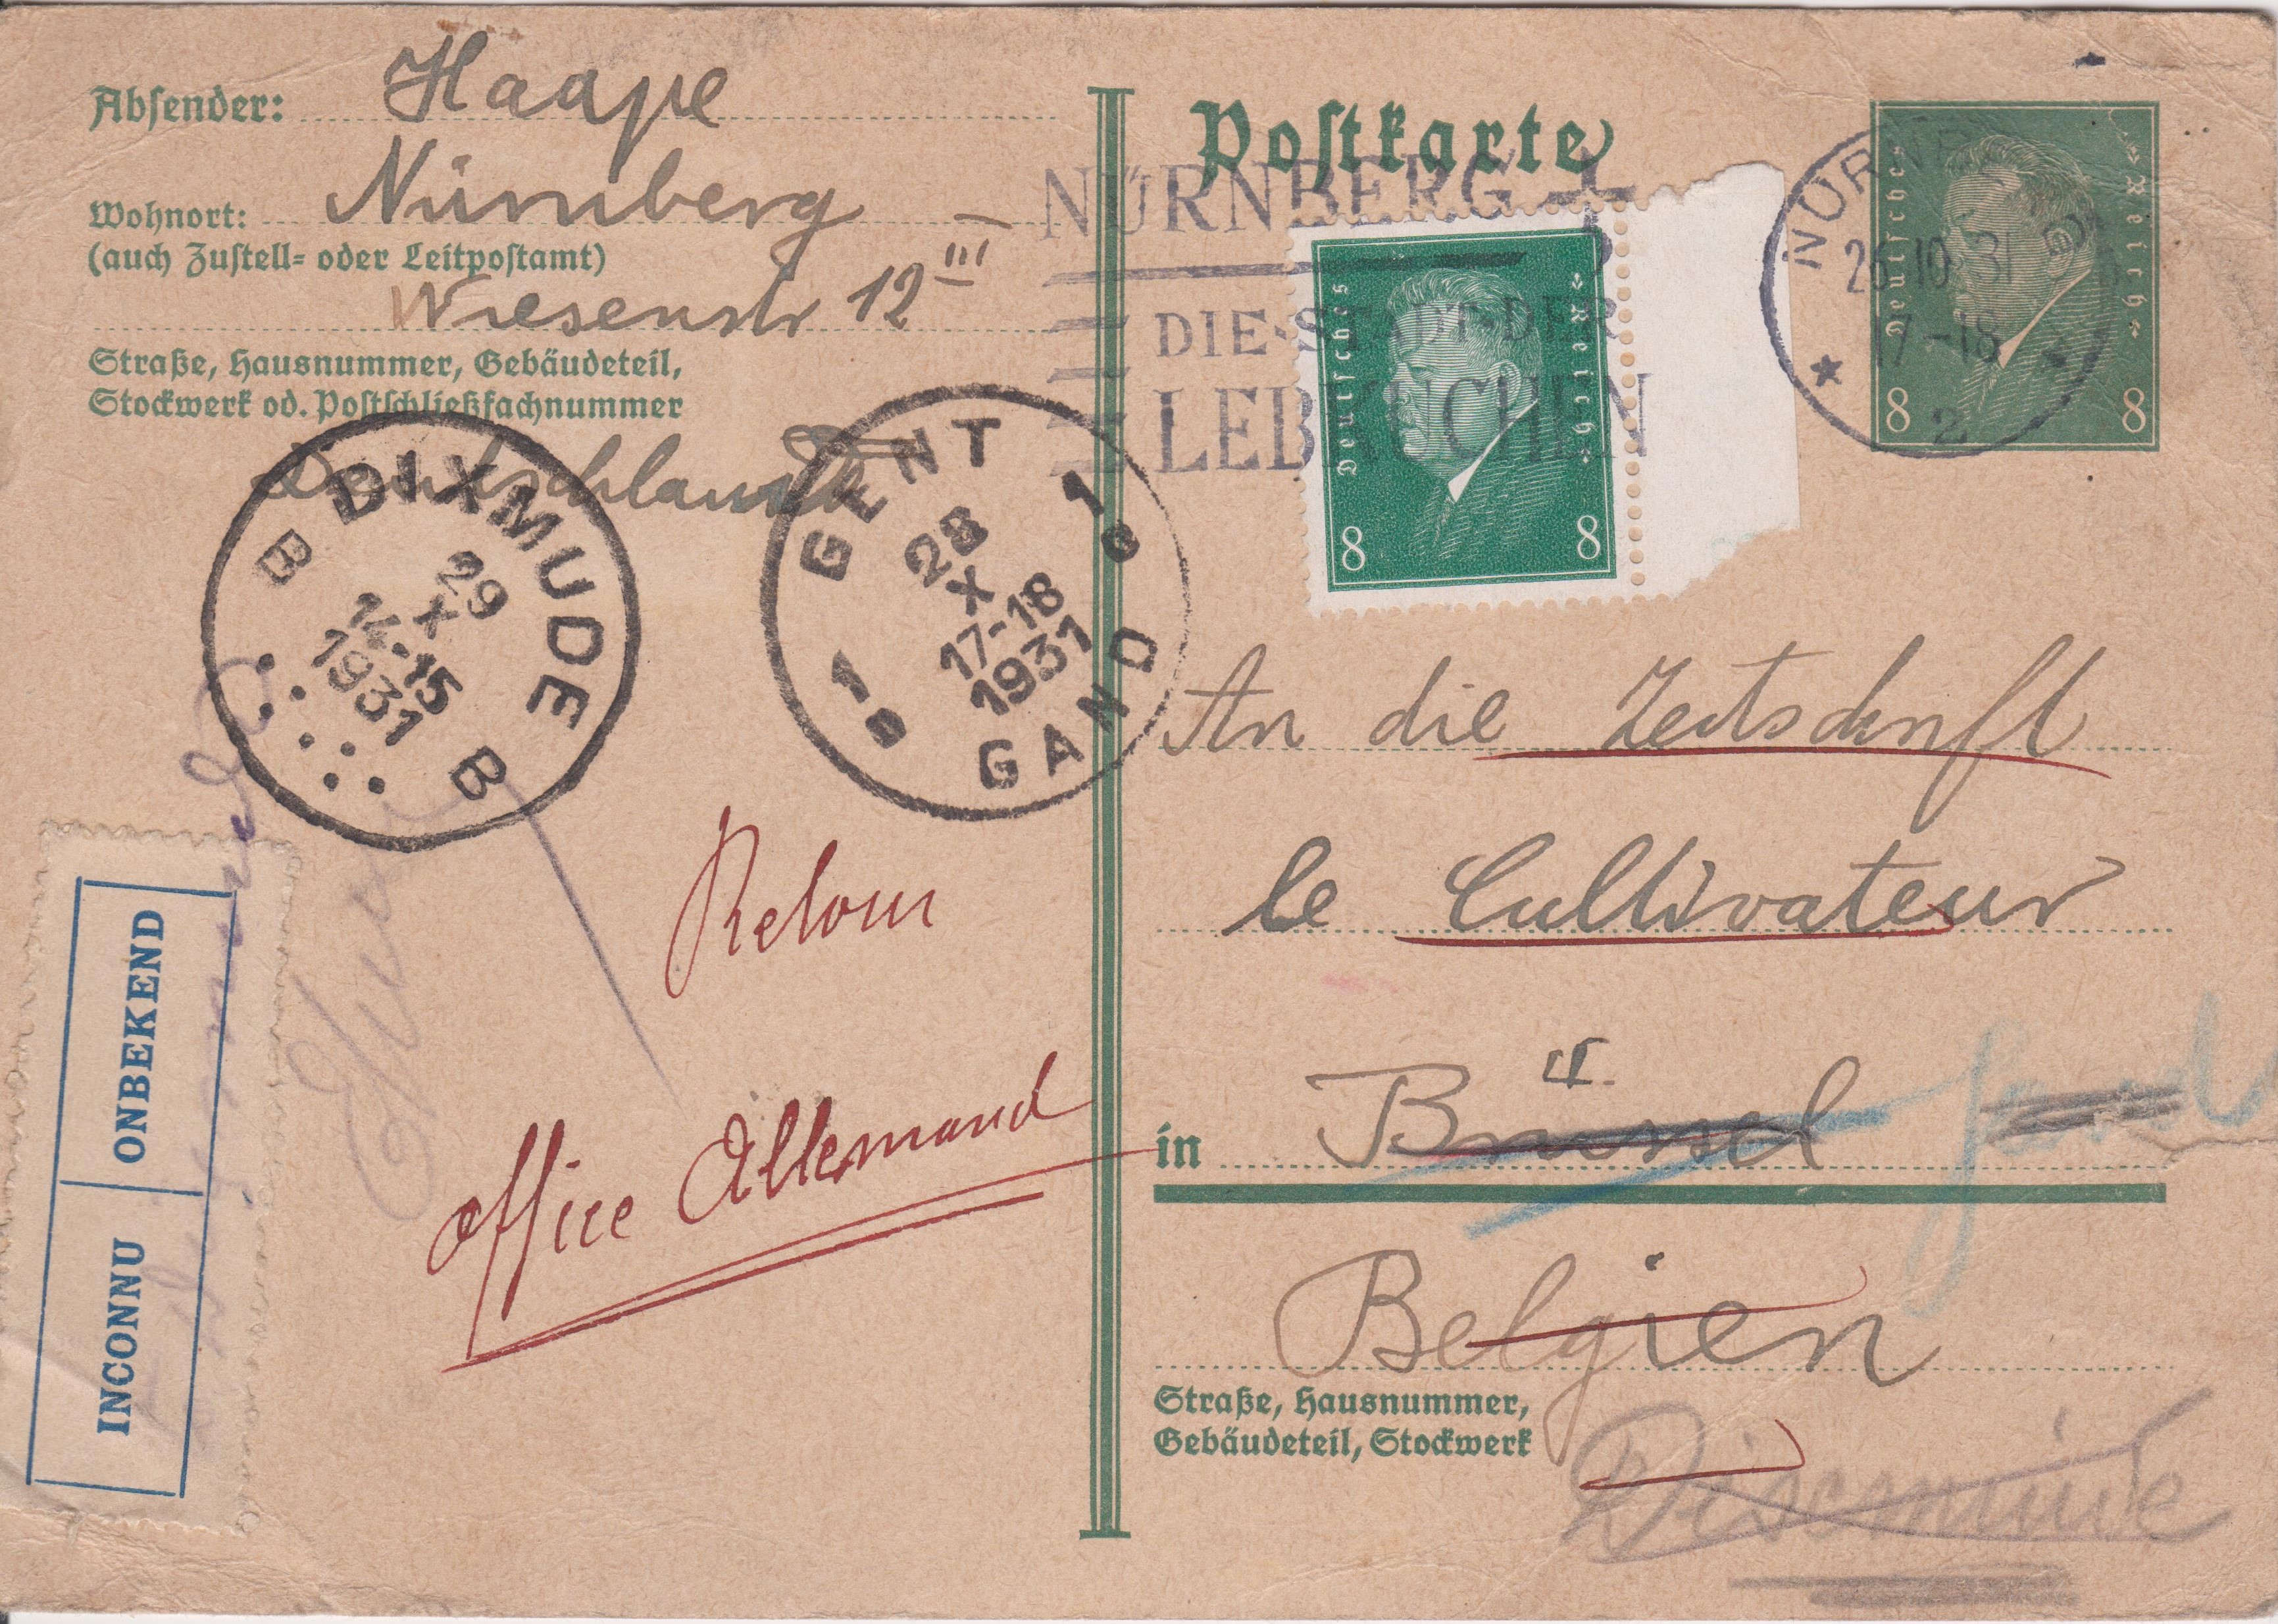 Absender: Haape
Wohnort: Nürnberg –
(auch Zustell- oder Leitpostamt)
Wiesenstr 12 III
Straße, Hausnummer, Gebäudeteil,
Stockwerk od. Postschließfachnummer
Deutschland
B DIXMUDE B
29
X
14-15
1931
GENT 1
GAND 1
28
X
17-18
1931
INCONNU ONBEKEND
Retour
office Allemand
Postkarte
NÜRNBERG
DIE·STADT·DER
LEBKUCHEN
Deutsches Reich
8 8
NÜRNBERG
26.10.31
17-18
* 2 *
Deutsches Reich
8 8
An die Zeitschrift
le Cultivateur
in Brüssel
II.
Gand
Belgien
Straße, Hausnummer,
Gebäudeteil, Stockwerk
Dixmude